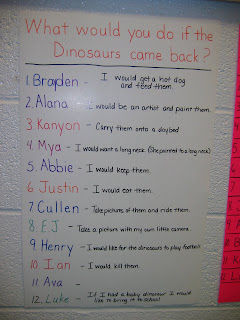 What would you do if the
Dinosaurs came back?
1. Brayden - I would get a hot dog
and feed them.
2. Alana - I would be an artist and paint them.
3. Kanyon - Carry them onto a daybed
4. Mya - I would want a long neck. (She pointed to a long neck)
5. Abbie - I would keep them.
6. Justin - I would eat them.
7. Cullen - Take pictures of them and ride them.
8. E.J - Take a picture with my own little camera.
9. Henry - I would like for the dinosaurs to play football.
10. Ian - I would kill them.
11. Ava -
12. Luke - If I had a baby dinosaur I would
like to bring it to school